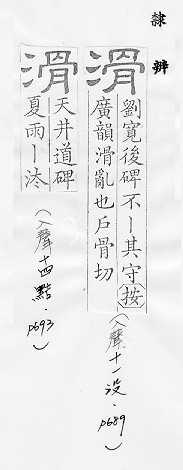 隸辨
滑
劉寬後碑不丨其守(按)
廣韻滑亂也戶骨切
(入聲十一没.p689)
滑
天井道碑
夏雨丨泆
(入聲十四黠.p693)